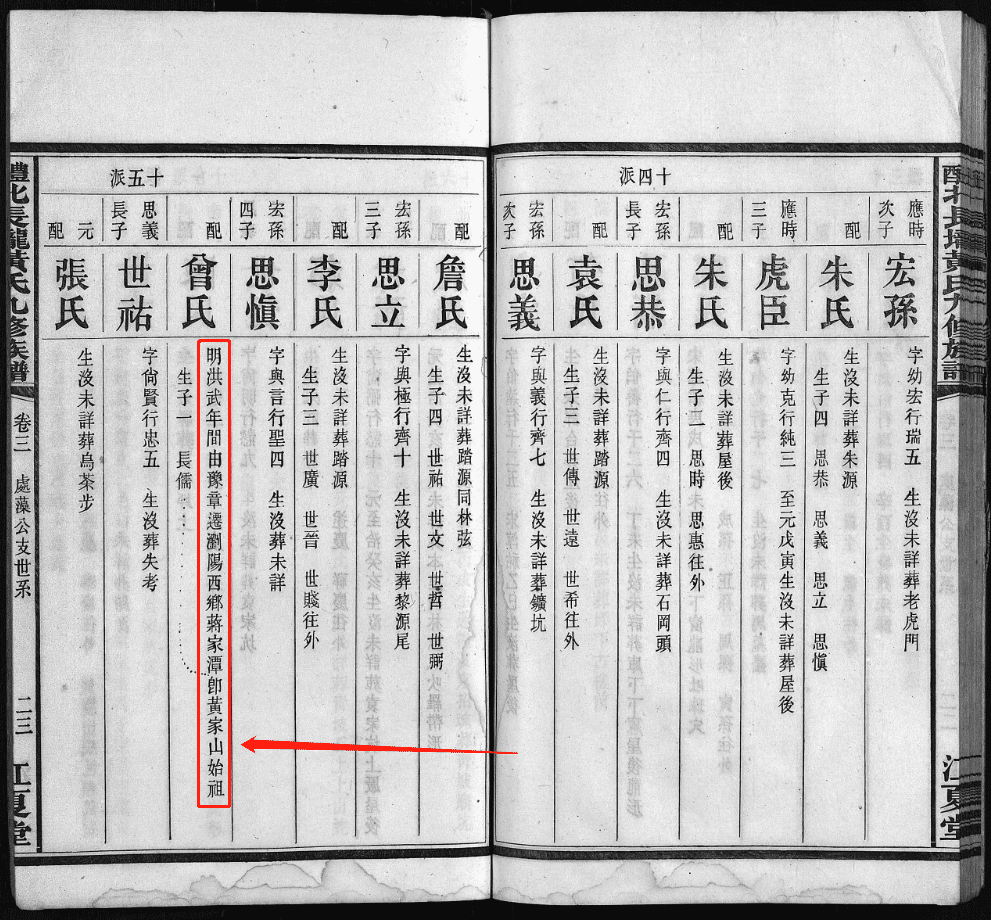 應時次子
宏孫
字幼宏行瑞五 生沒未詳葬老虎門
配
朱氏
生沒未詳葬朱源
生子四 思恭 思義 思立 思愼
應時三子
虎臣
字幼克行純三 至元戊寅生沒未詳葬屋後
配
朱氏
生沒未詳葬屋後
生子二 思時 思惠往外
十四派
宏孫長子
思恭
字與仁行齊四 生沒未詳葬石岡頭
配
袁氏
生沒未詳葬踏源
生子三 世傳 世遠 世希往外
宏孫次子
思義
字與義行齊七 生沒未詳葬鑛坑
江夏堂
配
詹氏
生沒未詳葬踏源同林弦
生子四 世祐 世文 世哲 世弼
宏孫三子
思立
字與極行齊十 生沒未詳葬黎源尾
配
李氏
生沒未詳葬踏源
生子三 世廣 世晉 世賤往外
宏孫四子
思愼
字與言行聖四 生沒葬未詳
配
曾氏
明洪武年間由豫章遷瀏陽西鄉蔣家潭卽黃家山始祖
生子一 長儒
十五派
思義長子
世祐
字尙賢行忠五 生沒葬失考
元配
張氏
生沒未詳葬烏茶步
醴北長壠黃氏九修族譜
卷三 處藻公支世系
二三
江夏堂